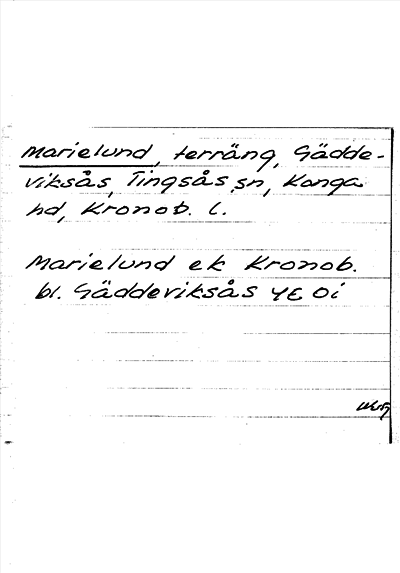 Marielund, terräng, Gädde-
viksås, Tingsås sn, Konga
hd, Kronob. l.
Marielund ek Kronob.
bl. Gäddeviksås 4E 0i